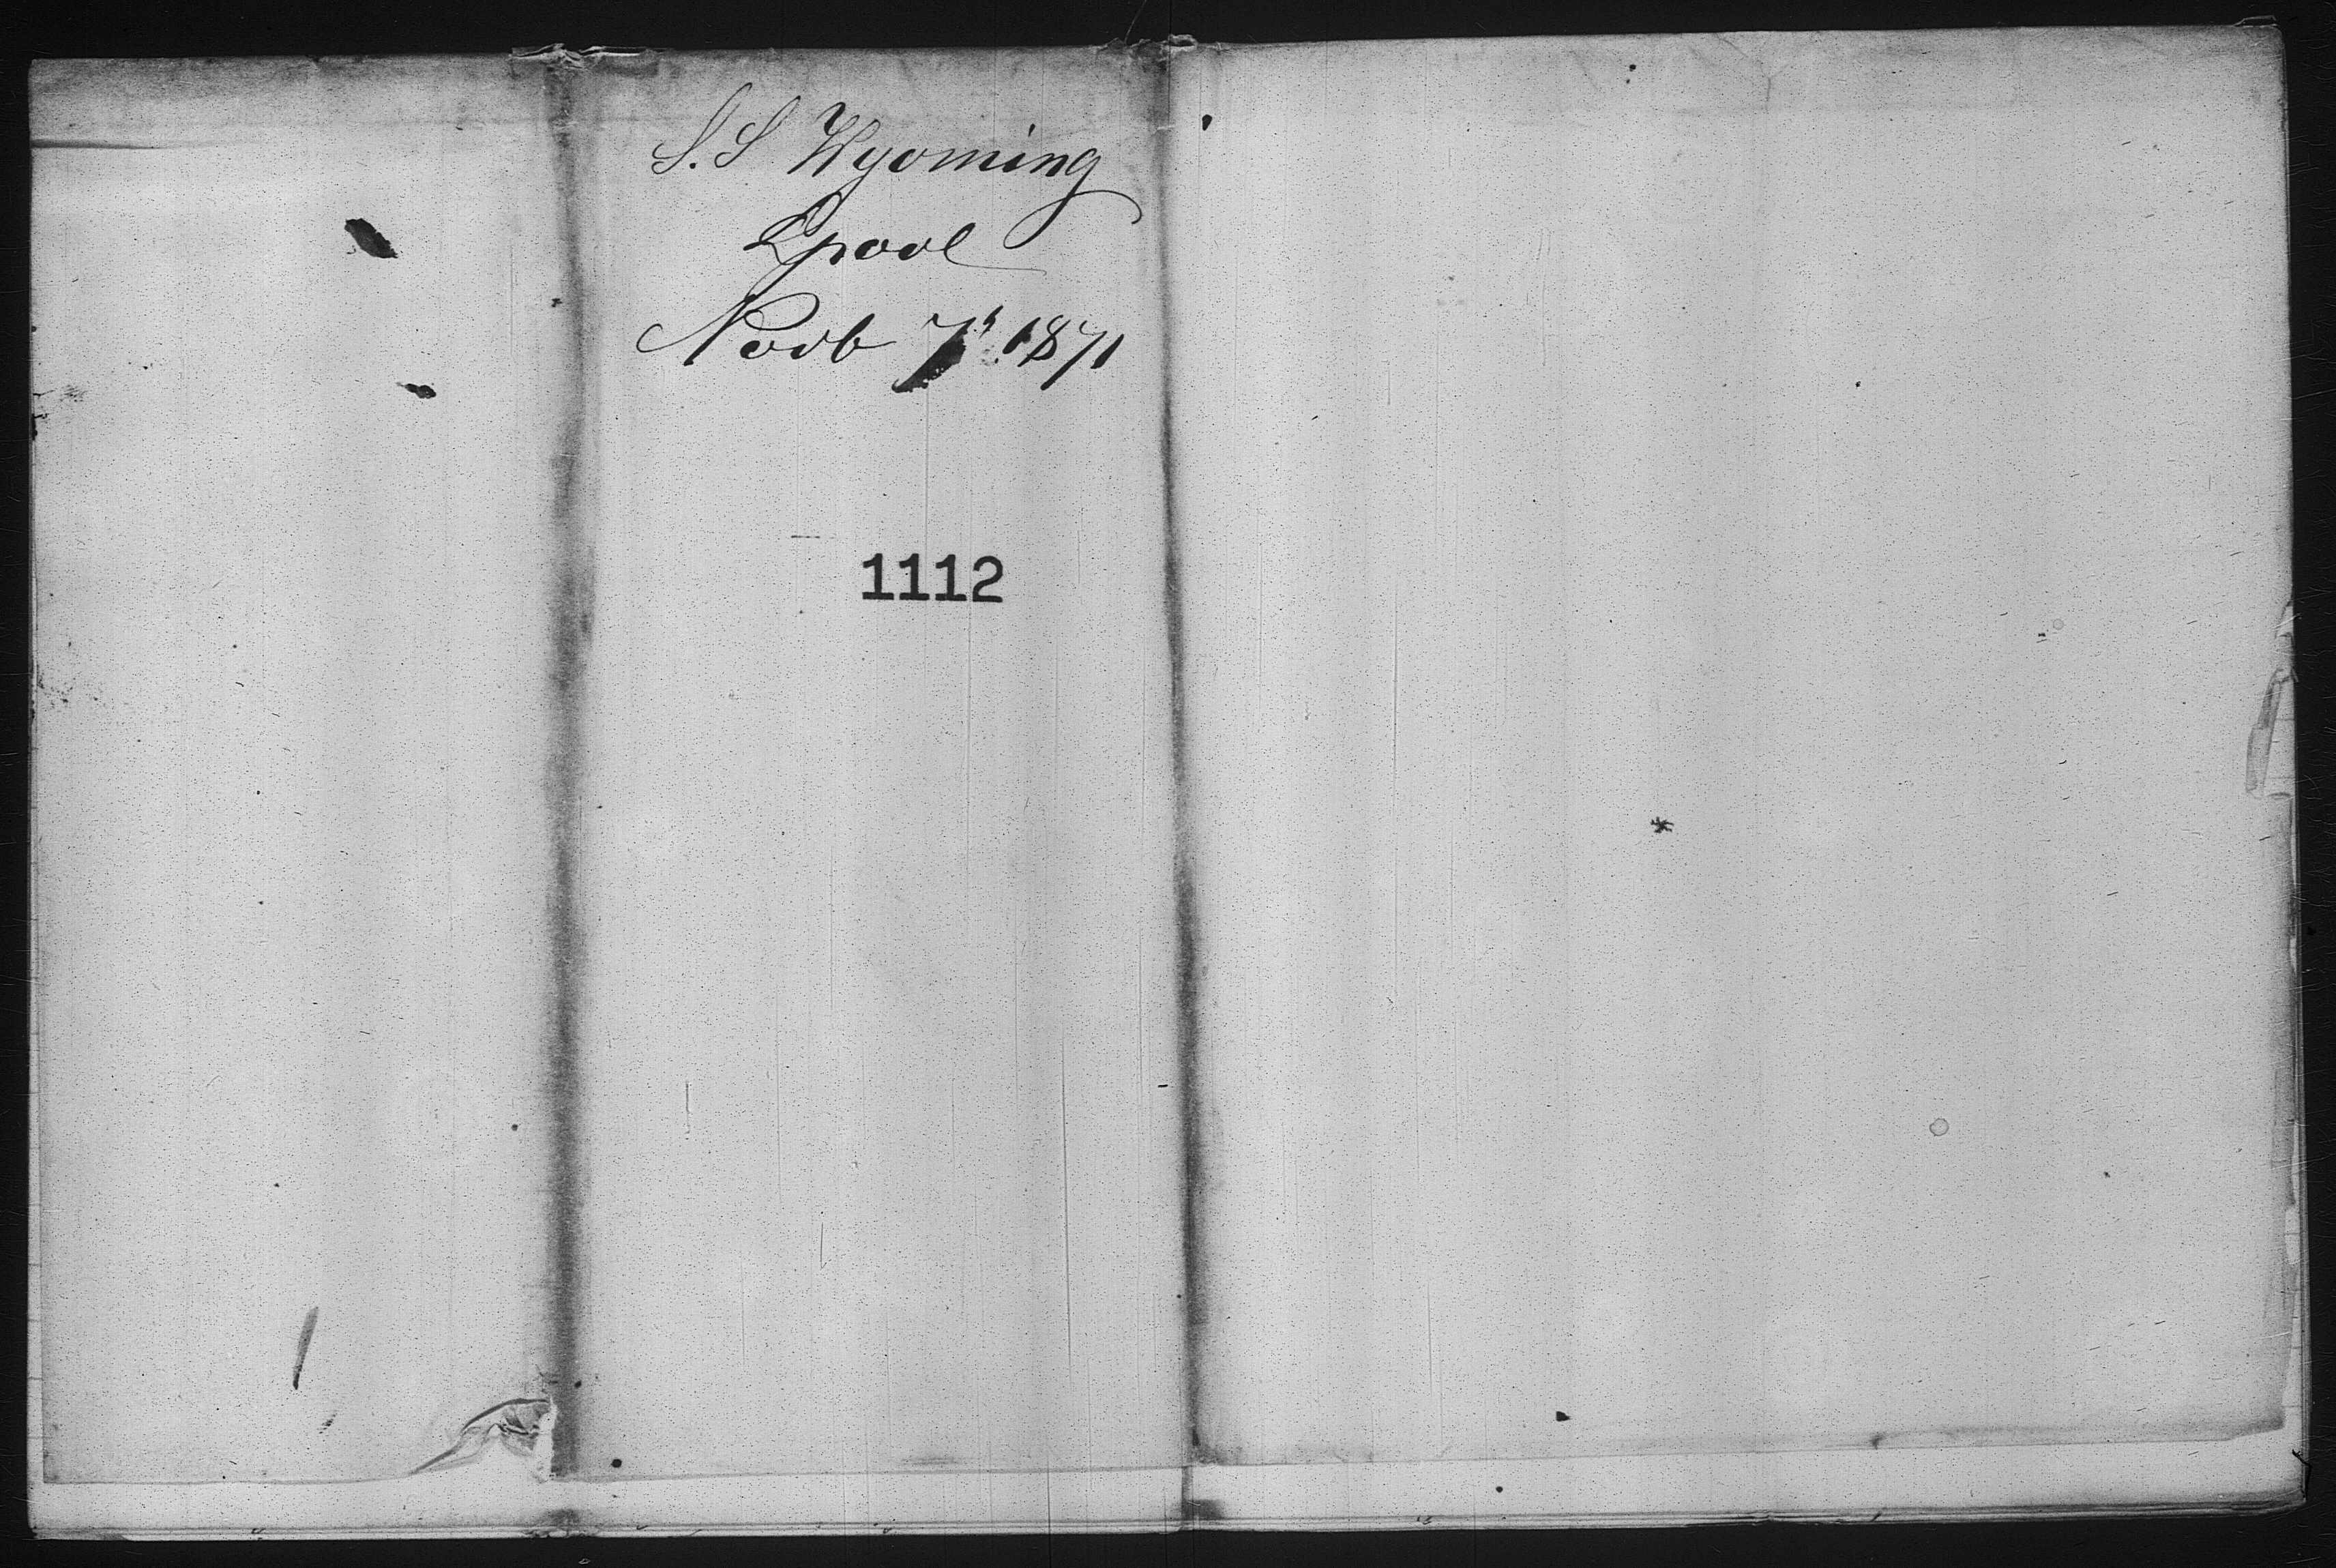 S.S Wyoming
Lpool
Novb 7" 1871
1112